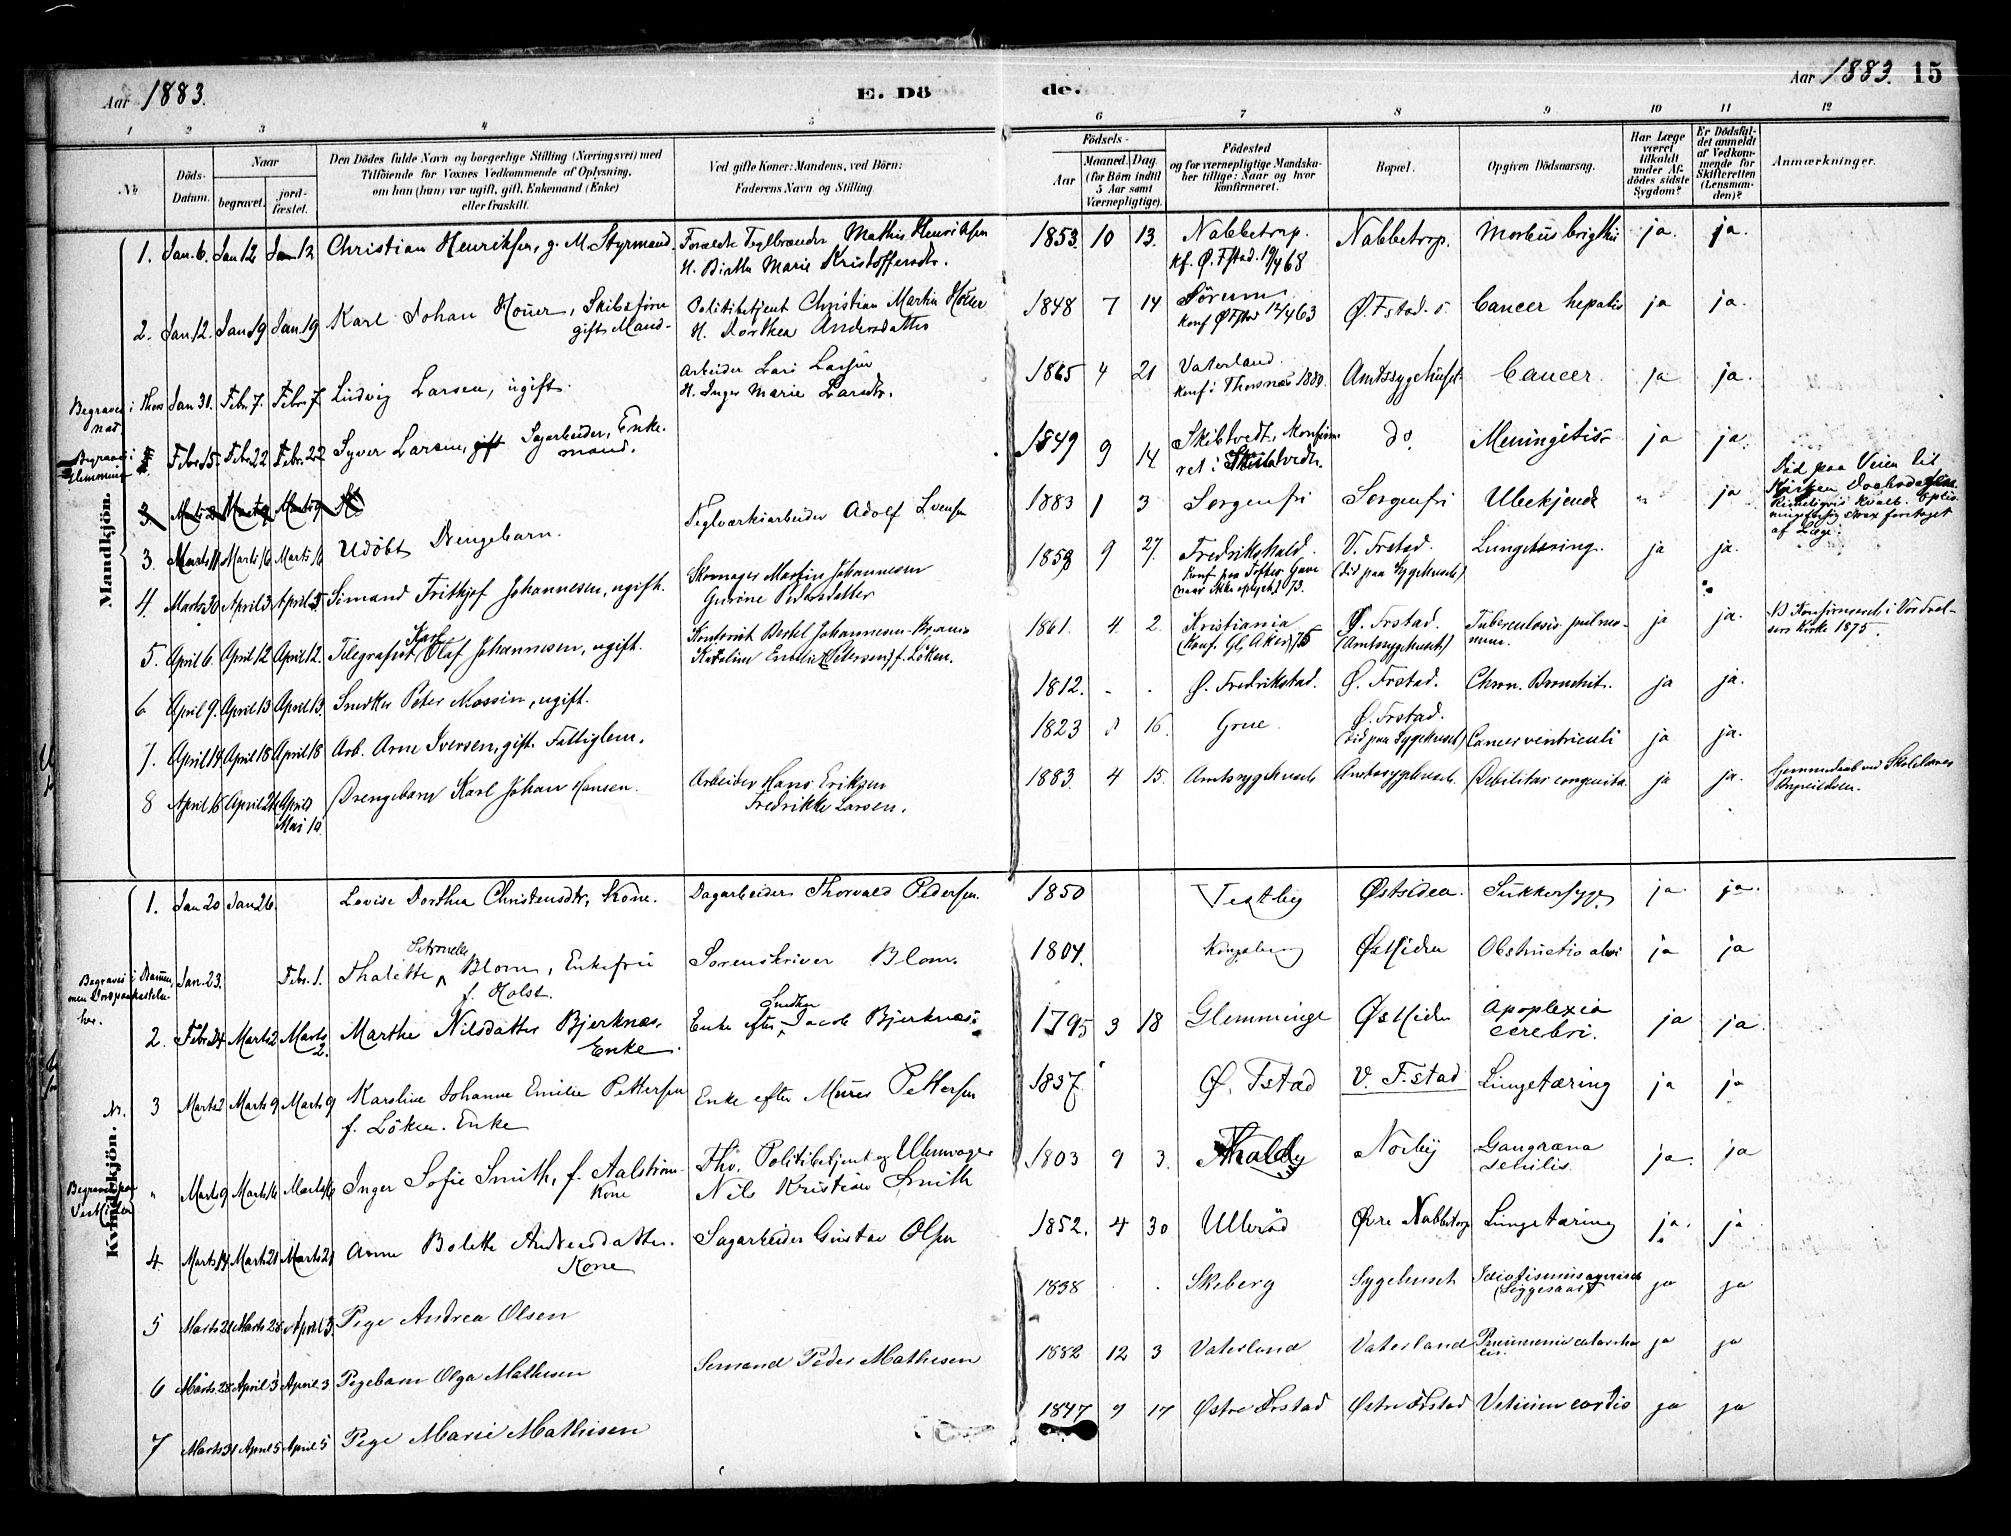 Aar 1883.
E. Dö
de.
Aar 1883. 15
1 2 3 4 5 6 7 8 9 10 11 12
No
Döds-Datum.
Naar
begravet.
jord-fæstet.
Den Dödes fulde Navn og borgerlige Stilling (Næringsvei) med
Tilföiende for Voxnes Vedkommende af Oplysning,
om han (hun) var ugift, gift, Enkemand (Enke)
eller fraskilt.
Ved gifte Koner: Mandens, ved Börn:
Faderens Navn og Stilling.
Födsels-
Aar
Maaned. Dag.
(for Börn indtil
5 Aar samt
Værnepligtige).
Födested
og for værnepligtige Mandska-
ber tillige: Naar og hvor
konfirmeret.
Bopæl.
Opgiven Dödsaarsag.
Har Læge
været
tilkaldt
under Af-
dödes sidste
Sygdom?
Er Dödsfal-
det anmeldt
af Vedkom-
mende for
Skifteretten
(Lensman-
den)?
Anmærkninger.
Mandkjön.
1. Jan. 6. Jan 12 Jan 12 Christian Henriksen, g. M. Styrmand. Forældre Teglbrænder Mathis Henriksen
H. Birthe Marie Kristoffersdtr. 1853 10 13. Nabbetorp. Nabbetorp. Morbus brigthii ja. ja.
kf. Ø. Fstad.
2. Jan. 12. Jan 19 Jan. 19 Karl Johan Höuer, Skibsföre
gift Mand- Politibetjent Christian Martin Höuer
H. Dorthea Andersdatter 1848 7 14 Sörum Ø. Fstad. Cancer hepatis ja ja.
konf Ø Fstad 12/4 63
Begravet i Thors
næs Jan 31. Febr. 7. Febr. 7 Ludvig Larsen, ugift. Arbeider Lars Larsen
H. Inger Marie Larsdtr. 1865 4 21 Vaterland. Amtssygehuset Cancer. ja ja.
konf i Thorsnæs 1880.
Begravet i
Glemminge Febr. 15. Febr 22 Febr. 22 Syver Larsen, gift Sagarbeider, Enke-
mand. 1849 9 14 Skibtvedt, konfirme-
ret i Skibtvedt. do Meningitis ja ja.
3. Marts 11 Marts 16 Marts 16 Udöbt Drengebarn. Teglværksarbeider Adolf Svensen 1883 1 3 Sorgenfri Sorgenfri Ubekjendt " ja Död paa Veien til
Kirken
af Læge.
4. Marts 30 April 3 April 3 Sömand Frithjof Johannesen, ugift. Skomager Martin Johannesen
Gurine Pedersdatter 1858 9 27. Fredrikshald. V. Frstad.
(död paa Sygehuset) Lungetæring. ja ja.
5. April 6. April 12 April 12. Telegrafist Karl Olaf Johannesen, ugift. Kontorist Bertel Johannesen
Karoline Emilie Petersen f. Löken. 1861. 4. 2. Kristiania
(Konf. Gl. Aker) 75 Ø. Frstad.
(Amtssygehuset) Tuberculosis pulmo-
num. ja ja. NB Konfirmeret i Vor Frel-
sers Kirke 1875.
6 April 9. April 13 April 13. Snedker Peter Mossin, ugift. 1812. - . Ø. Fredrikstad. Ø. Frstad. Chron. Bronchit. ja ja.
7. April 14 April 18 April 18 Arb. Arne Iversen, gift. Fattiglem. 1823 8 16. Grue. Ø. Frstad.
(död paa Sygehuset) Cancer ventriculi ja ja.
8 April 15 April 21 April
Mai 10. Drengebarn Karl Johan Hansen. Arbeider Hans Eriksen
Fredrikke Larsen. 1883. 4 15. Amtssygehuset Amtssygehuset. Debilitas congenita. ja ja. Hjemmedaab ved Skolelærer
Kvindekjön. Nr.
1. Jan 20 Jan 26. Lovise Dorthea Christensdtr, Kone. Dagarbeider Thorvald Pedersen. 1850 Vestby Østsiden. Sukkersyge ja ja.
Begravet i Jan. 23. Febr. 1. Thalette Petronelle Blom, Enkefrue
f. Holst. Sorenskriver Blom. 1804. Kongsberg Østsiden Obstructio alvi ja ja
2. Febr. 24 Marts 2 Marts
2. Marthe Nilsdatter Bjerknæs.
Enke. Enke efter Snedker Jacob Bjerknæs 1795 3 18 Glemminge Østsiden Apoplexia
cerebri. ja ja.
3 Marts 2 Marts 9 Marts 9 Karoline Johanne Emilie Pettersen
f. Löken. Enke Enke efter Murer Pettersen 1837. Ø. Fstad V. F.stad Lungetæring ja ja
Begravet paa
Vestsiden " Marts 9 Marts 16 Marts 16 Inger Sofie Smith, f. Aalström.
Kone Fhv. Politibetjent og
Nils Kristian Smith 1803 9 3. Norby Gangræna
senilis. ja. ja
4. Marts 14 Marts 21 Marts 21 Anne Bolette Andersdatter.
Kone Sagarbeider Gustav Olsen 1852. 4 30 Ulleröd Øvre Nabbetorp Lungetæring ja. ja
5 Marts 21 Marts 28 April 3. Pige Andrea Olsen 1838 . . Skeberg Sygehuset Idiotismus
(Liggesaar) ja ja
6 Marts 28 April 3 April 3 Pigebarn Olga Mathisen Sömand Peder Mathisen 1882 12 3 Vaterland Vaterland Pneumonia catarrha-
lis. ja ja
7 Marts 31 April 5 April 5 Pige Marie Mathisen 1847 9 17 Østre Frstad Østre Frstad Vitium cordis ja ja